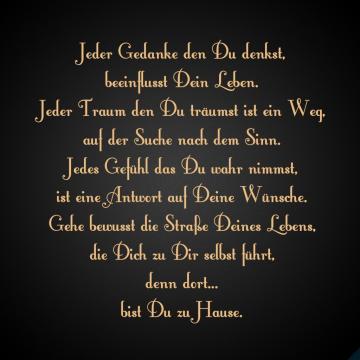 Jeder Gedanke den Du denkst,
beeinflusst Dein Leben.
Jeder Traum den Du träumst ist ein Weg,
auf der Suche nach dem Sinn.
Jedes Gefühl das Du wahr nimmst,
ist eine Antwort auf Deine Wünsche.
Gehe bewusst die Straße Deines Lebens,
die Dich zu Dir selbst führt,
denn dort...
bist Du zu Hause.